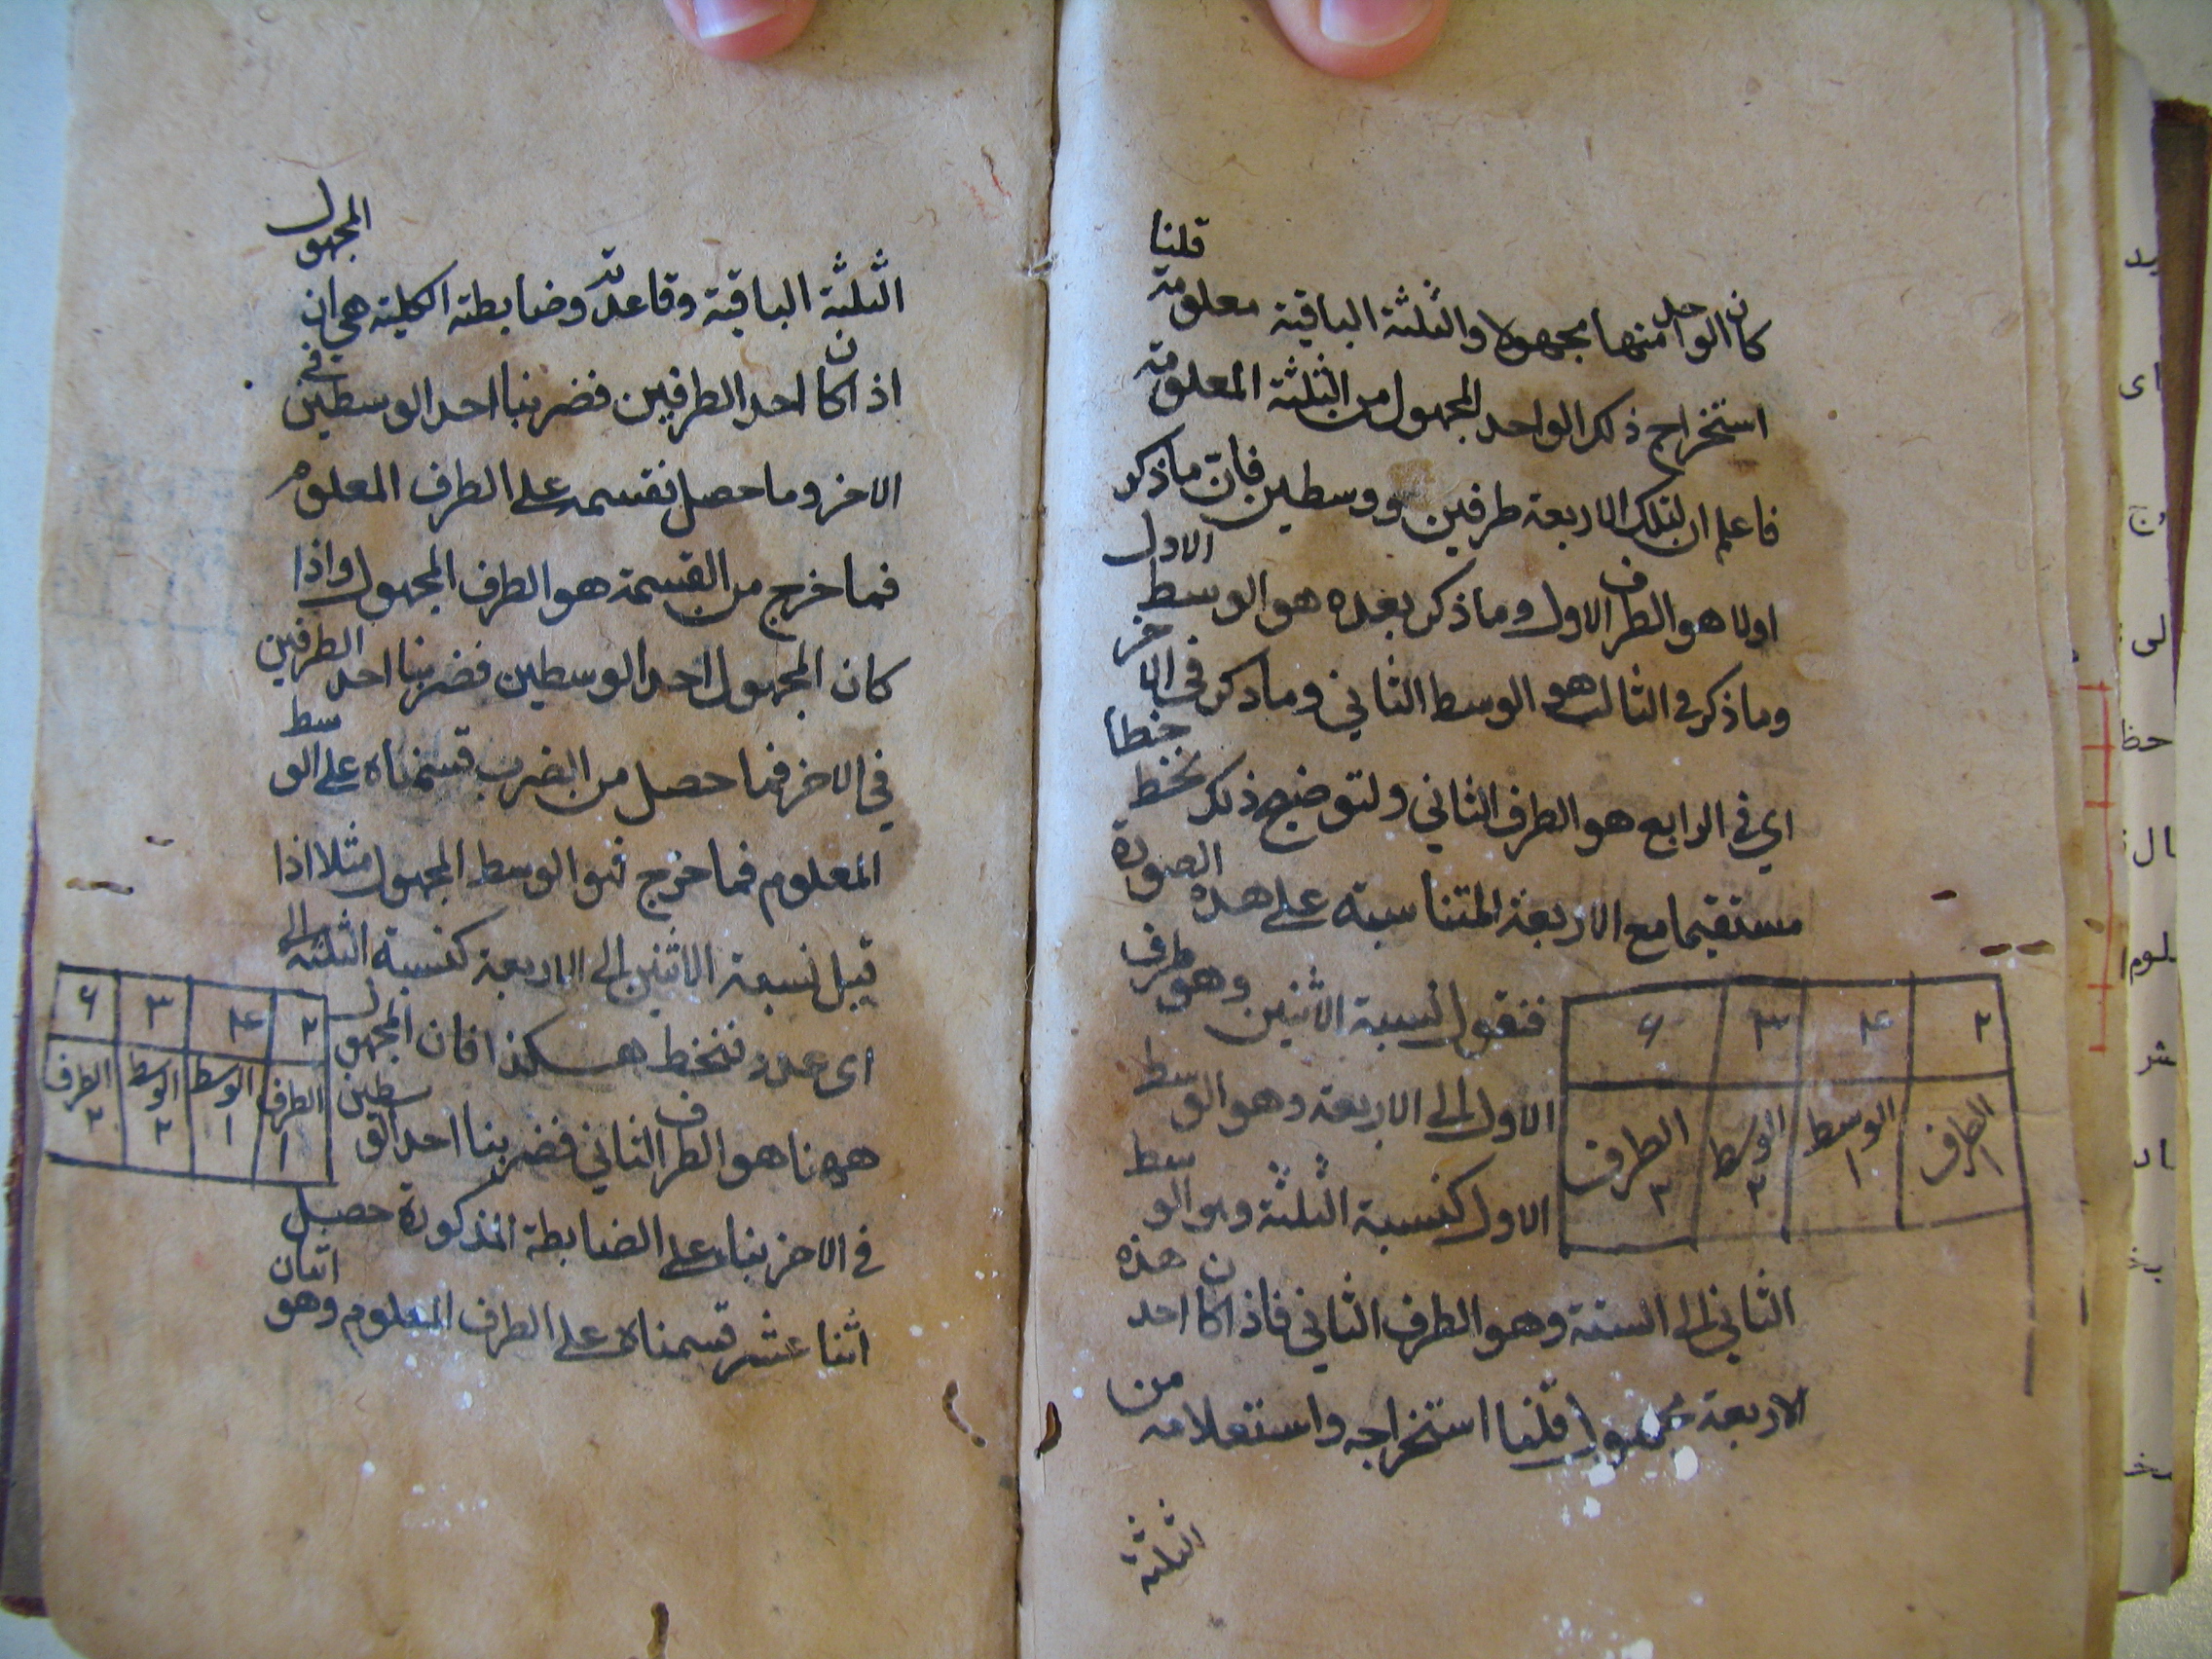 كان الواحد منها مجهولا والثلثة الباقية معلومة قلنا
استخراج ذلك الواحد المجهول من الثلثة المعلومة
فاعلم ان لتلك الاربعة طرفين ووسطين فان ما ذكر
اولا هو الطرف الاول وما ذكر بعده هو الوسط الاول
وما ذكر في الثالث هو الوسط الثاني وما ذكر في الاخر
اي في الرابع هو الطرف الثاني ولتوضيح ذلك نخط خطا
مستقيما مع الاربعة المتناسبة على هذه الصورة
فنقول نسبة الاثنين وهو طرف
الاول الى الاربعة وهو الوسط
الاول كنسبة الثلثة وهو الوسط
٢ ۴ ٣ ۶
الطرف ١ الوسط ١ الوسط ٢ الطرف ٢
الثاني الى الستة وهو الطرف الثاني فاذا كان احد هذه
الاربعة مجهولا قلنا استخراجه واستعلامه من
الثلثة
الثلثة الباقية وقاعدته وضابطته الكلية هي ان المجهول
اذا كان احد الطرفين فضربنا احد الوسطين في
الاخر وما حصل نقسمه على الطرف المعلوم
فما خرج من القسمة هو الطرف المجهول واذا
كان المجهول احد الوسطين فضربنا احد الطرفين
في الاخر فما حصل من الضرب قسمناه على الوسط
المعلوم فما خرج فهو الوسط المجهول مثلا اذا
قيل نسبة الاثنين الى الاربعة كنسبة الثلثة الى
اي عدد فنخط هكذا فان المجهول
ههنا هو الطرف الثاني فضربنا احد الوسطين
٢ ۴ ٣ ۶
الطرف ١ الوسط ١ الوسط ٢ الطرف ٢
في الاخر بناء على الضابطة المذكورة حصل
اثنا عشر قسمناه على الطرف المعلوم وهو اثنان